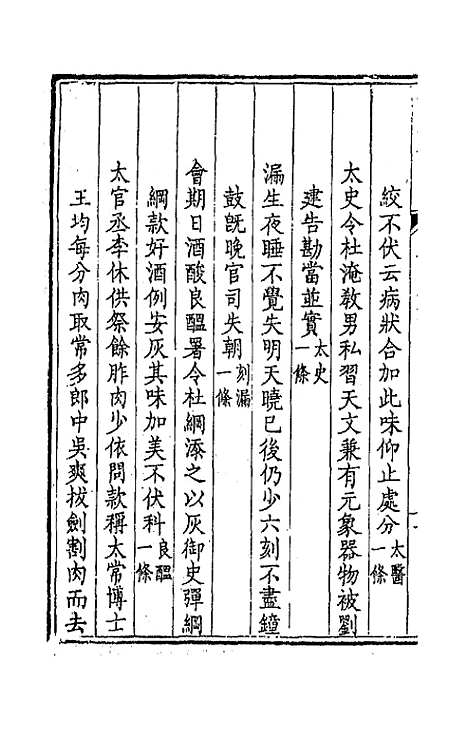 絞不伏云病狀合加此味仰止處分太醫一條
太史令杜淹敎男私習天文兼有元象器物被劉
建告勘當並實太史一條
漏生夜睡不覺失明天曉已後仍少六刻不盡鐘
鼓旣晚官司失朝刻漏一條
會期日酒酸良醞署令杜綱添之以灰御史彈綱
綱款好酒例安灰其味加美不伏科良醞一條
太官丞李休供祭餘胙肉少依問款稱太常博士
王均每分肉取常多郎中吳爽拔劍割肉而去